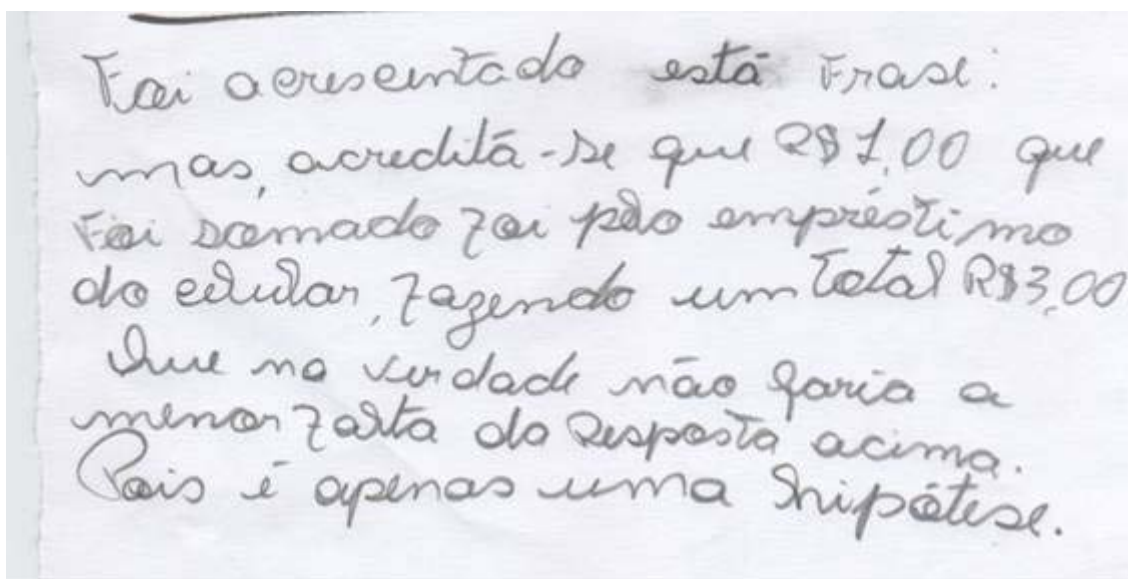 Foi acresentado está Frase:
mas, acreditá-se que R$ 1,00 que
Foi somado foi pelo empréstimo
do celular, fazendo um total R$3,00
Que na verdade não faria a
menor falta da Resposta acima.
Pois é apenas uma hipótese.